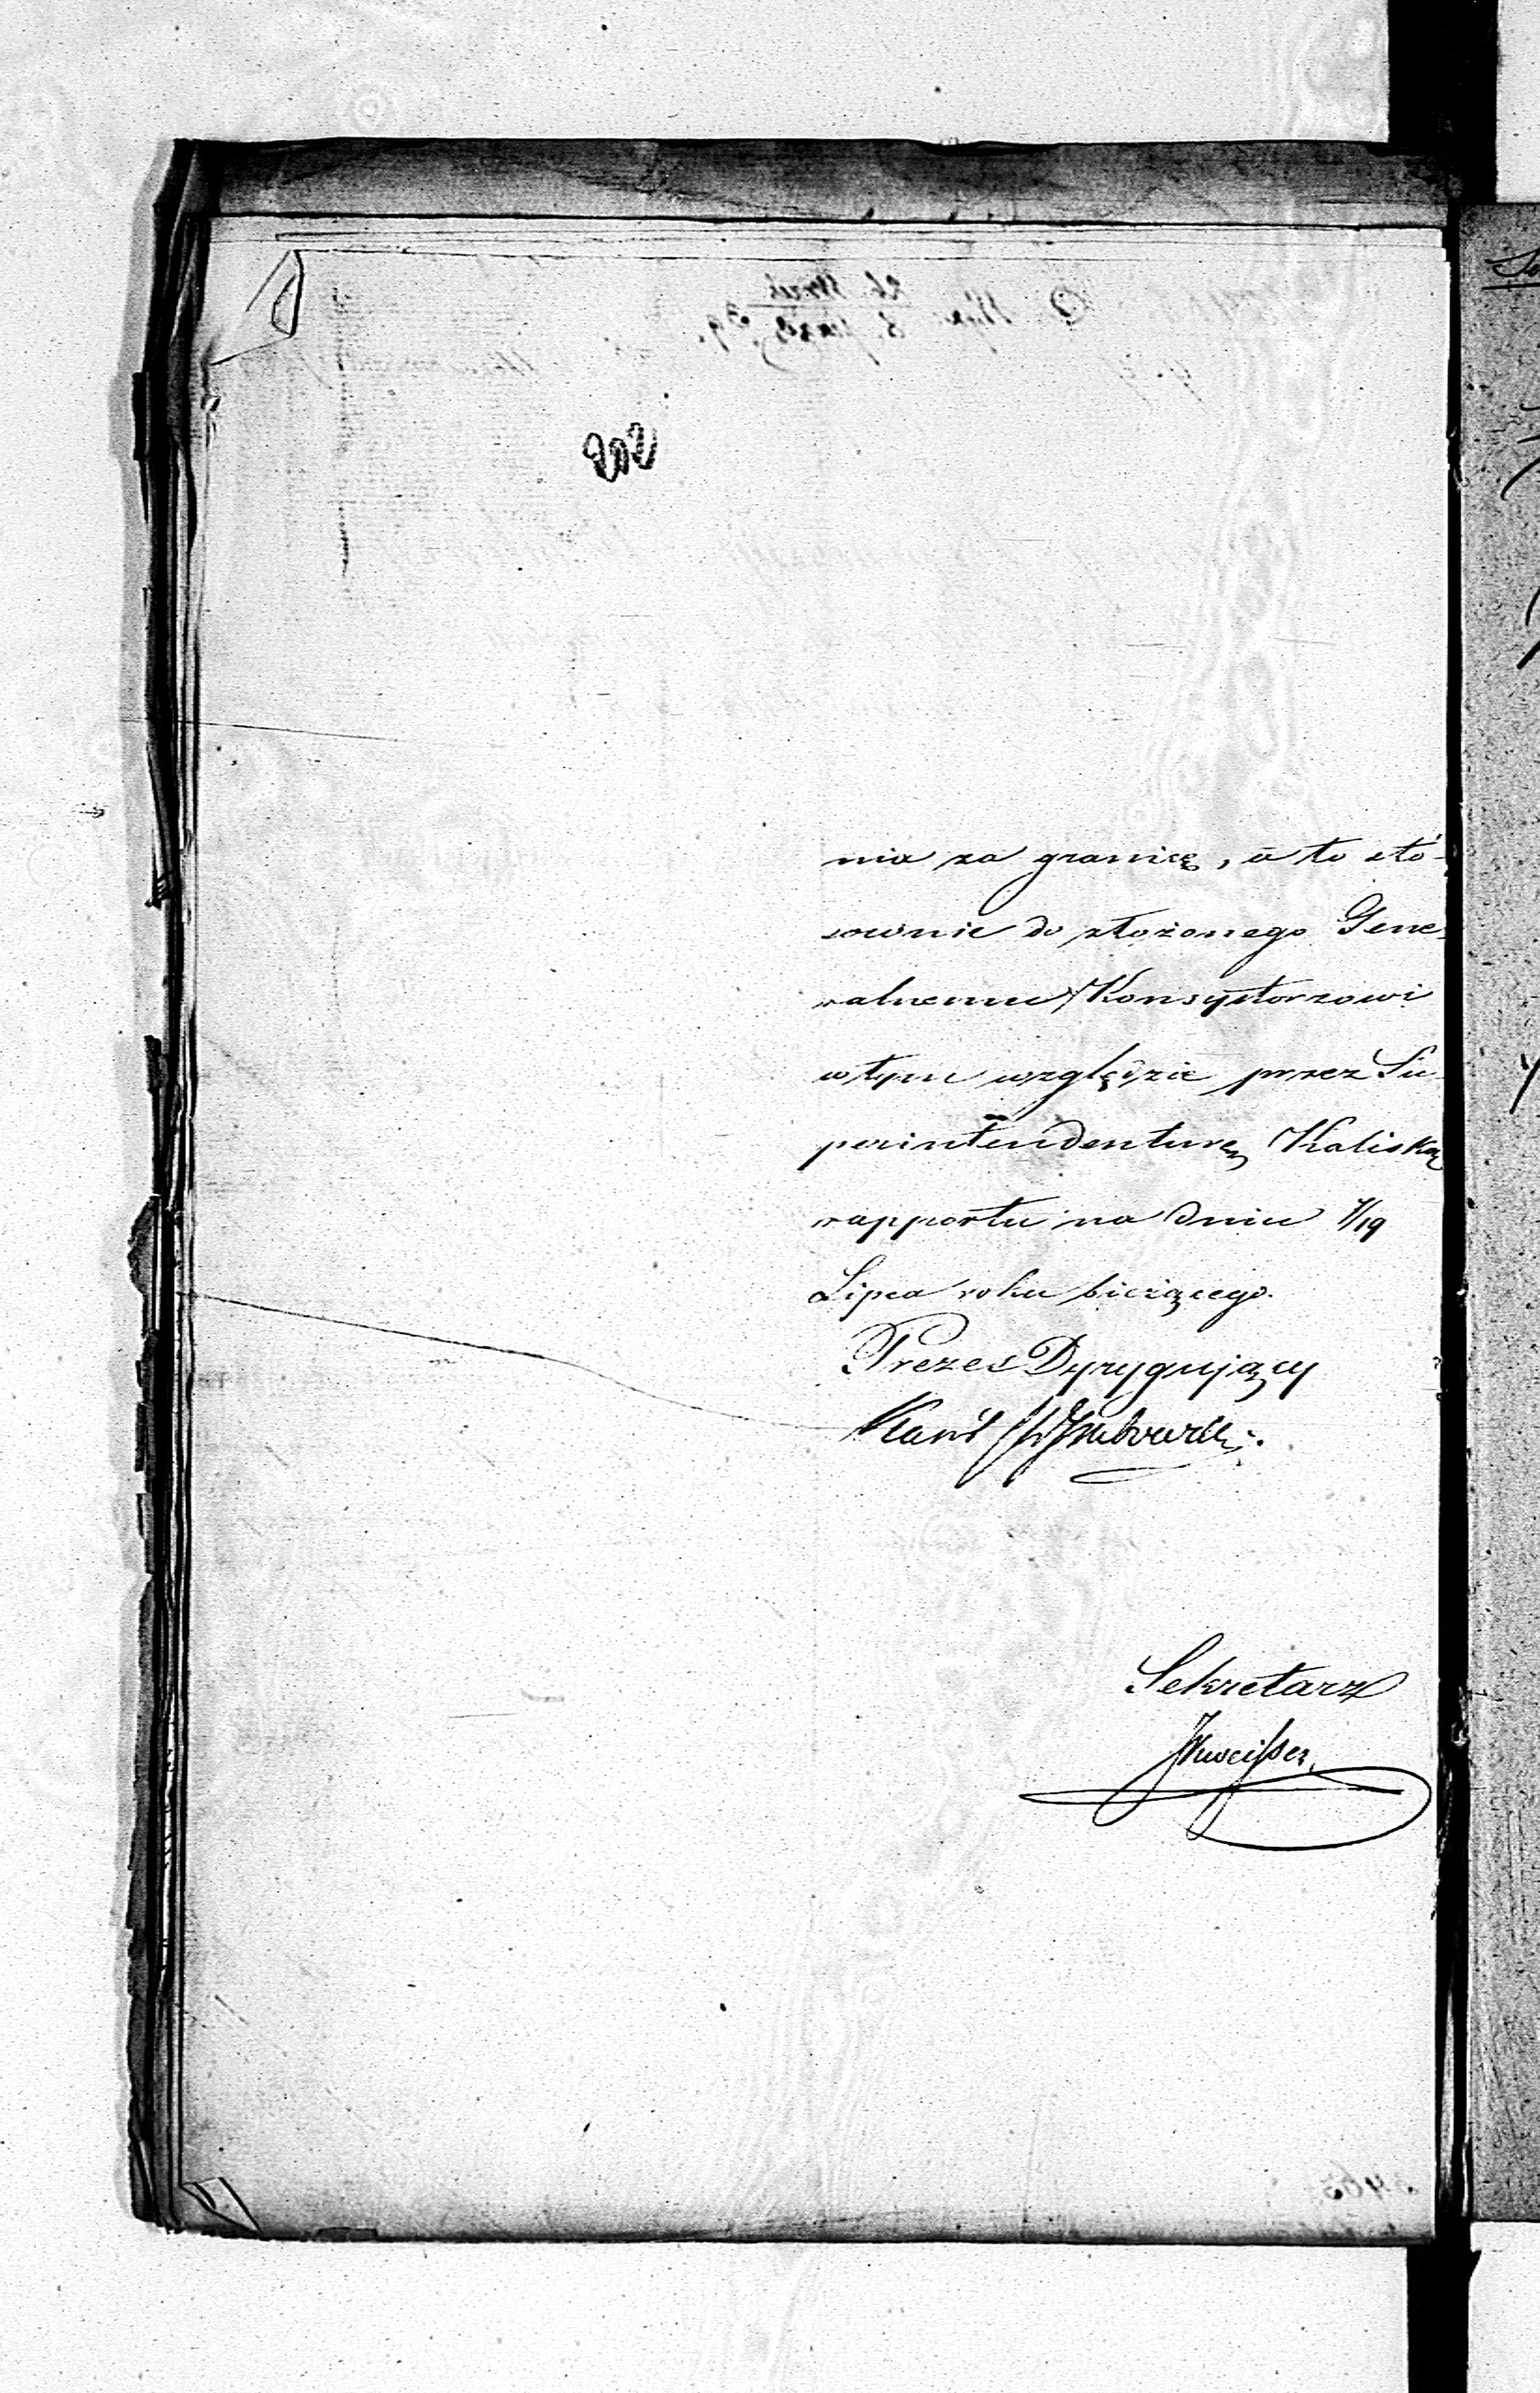 nia za granicę, a to sto-
sownie do złożonego Gene-
ralnemu Konsystorzowi
w tym względzie przez Su-
perintendenturę Kaliską
rapportu na dniu 7/19
Lipca roku bieżącego.
Prezes Dyrygujący
Sekretarz